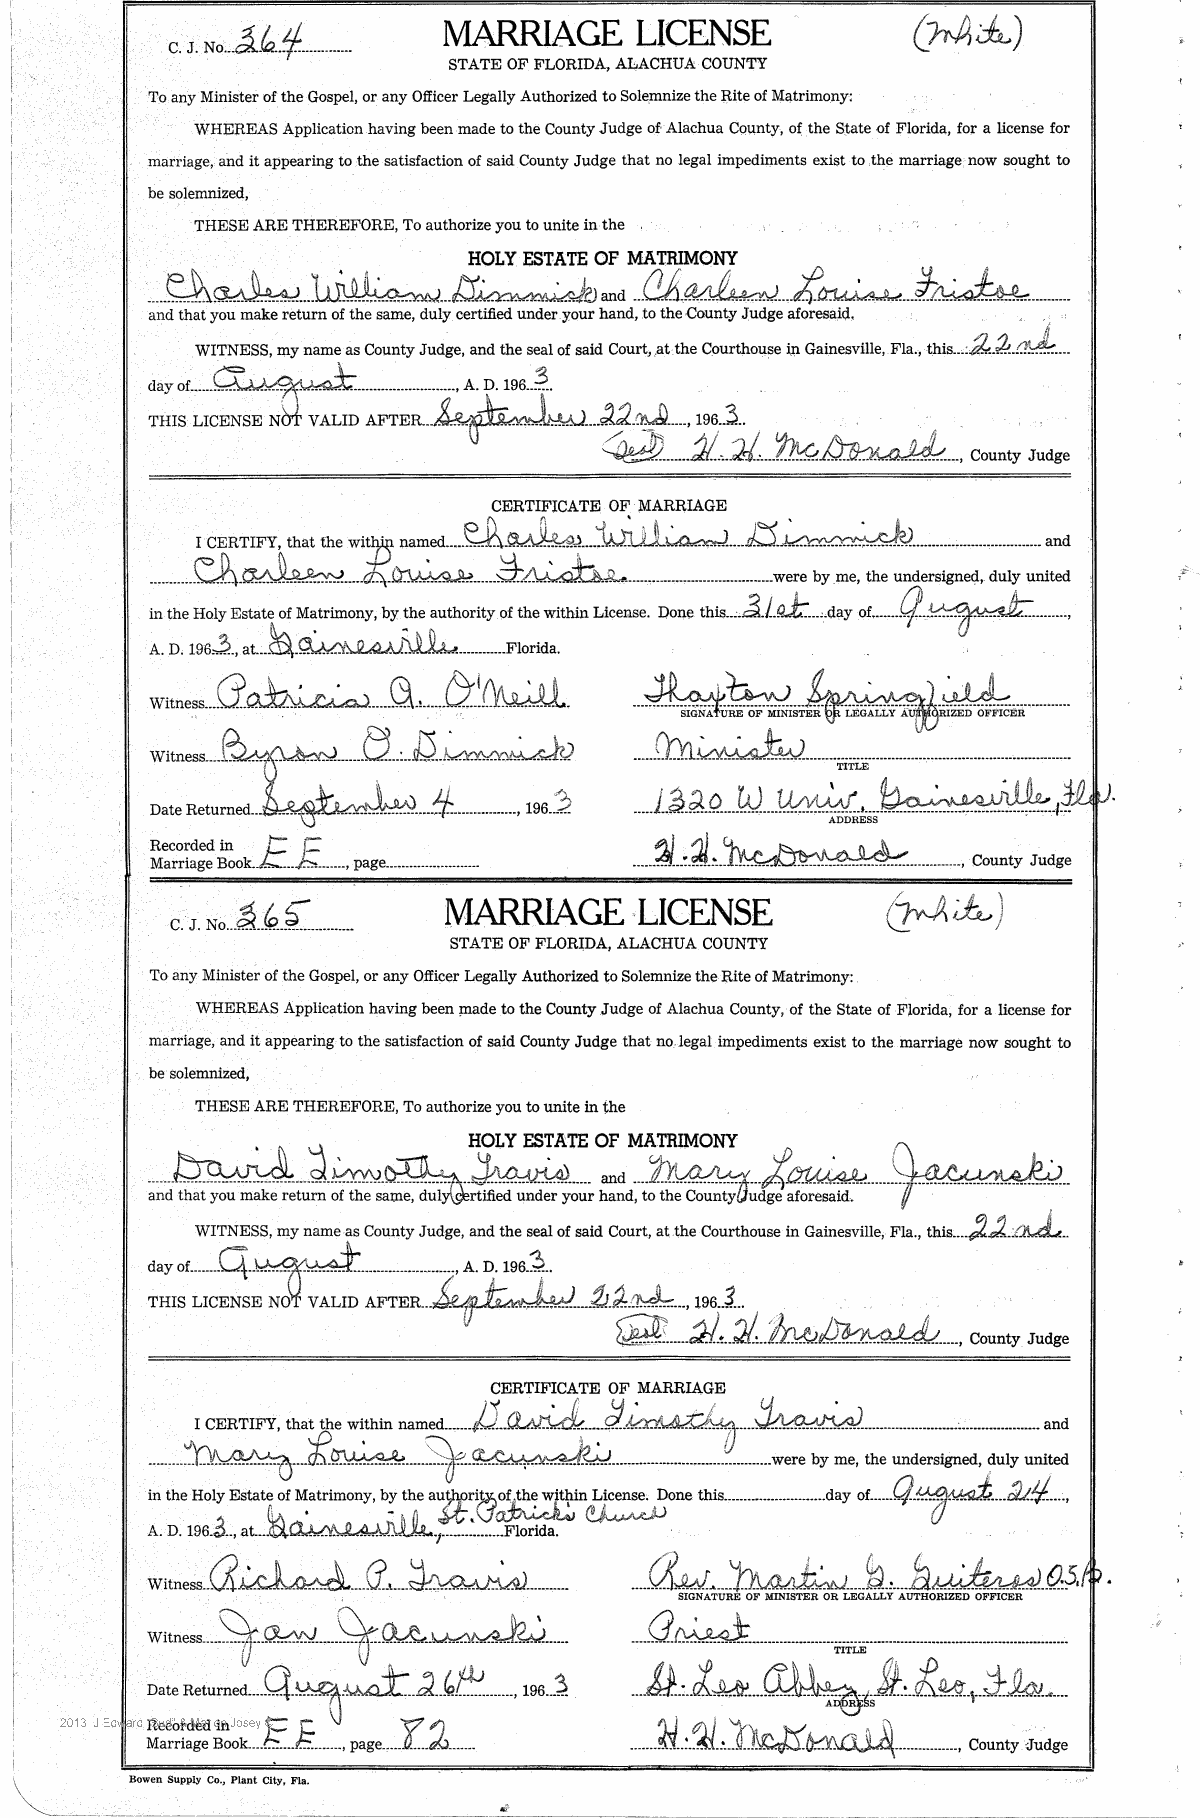 C. J. No. 364 MARRIAGE LICENSE (White)
STATE OF FLORIDA, ALACHUA COUNTY
To any Minister of the Gospel, or any Officer Legally Authorized to Solemnize the Rite of Matrimony:
WHEREAS Application having been made to the County Judge of Alachua County, of the State of Florida, for a license for
marriage, and it appearing to the satisfaction of said County Judge that no legal impediments exist to the marriage now sought to
be solemnized,
THESE ARE THEREFORE, To authorize you to unite in the
HOLY ESTATE OF MATRIMONY
Charles William Dimmick and Charleen Louise Fristoe
and that you make return of the same, duly certified under your hand, to the County Judge aforesaid.
WITNESS, my name as County Judge, and the seal of said Court, at the Courthouse in Gainesville, Fla., this 22nd
day of August, A. D. 1963.
THIS LICENSE NOT VALID AFTER September 22nd, 1963.
(Seal) H. H. McDonald, County Judge
CERTIFICATE OF MARRIAGE
I CERTIFY, that the within named Charles William Dimmick and
Charleen Louise Fristoe were by me, the undersigned, duly united
in the Holy Estate of Matrimony, by the authority of the within License. Done this 31st day of August,
A. D. 1963, at Gainesville Florida.
Witness Patricia A. O'Neill Thaxton Springfield
SIGNATURE OF MINISTER OR LEGALLY AUTHORIZED OFFICER
Witness Byron O. Dimmick Minister
TITLE
Date Returned September 4, 1963 1320 W Univ. Gainesville, Fla.
ADDRESS
Recorded in
Marriage Book EE, page H. H. McDonald, County Judge
C. J. No. 365 MARRIAGE LICENSE (White)
STATE OF FLORIDA, ALACHUA COUNTY
To any Minister of the Gospel, or any Officer Legally Authorized to Solemnize the Rite of Matrimony:
WHEREAS Application having been made to the County Judge of Alachua County, of the State of Florida, for a license for
marriage, and it appearing to the satisfaction of said County Judge that no legal impediments exist to the marriage now sought to
be solemnized,
THESE ARE THEREFORE, To authorize you to unite in the
HOLY ESTATE OF MATRIMONY
David Timothy Travis and Mary Louise Jacunski
and that you make return of the same, duly certified under your hand, to the County Judge aforesaid.
WITNESS, my name as County Judge, and the seal of said Court, at the Courthouse in Gainesville, Fla., this 22nd
day of August, A. D. 1963.
THIS LICENSE NOT VALID AFTER September 22nd, 1963.
(Seal) H. H. McDonald, County Judge
CERTIFICATE OF MARRIAGE
I CERTIFY, that the within named David Timothy Travis and
Mary Louise Jacunski were by me, the undersigned, duly united
in the Holy Estate of Matrimony, by the authority of the within License. Done this day of August 24,
A. D. 1963, at Gainesville, St. Patricks Church Florida.
Witness Richard P. Travis Rev. Martin G. Guiteras O.S.B.
SIGNATURE OF MINISTER OR LEGALLY AUTHORIZED OFFICER
Witness Jan Jacunski Priest
TITLE
Date Returned August 26th, 1963 St. Leo Abbey, St. Leo, Fla.
ADDRESS
Recorded in
Marriage Book EE, page 82 H. H. McDonald, County Judge
Bowen Supply Co., Plant City, Fla.